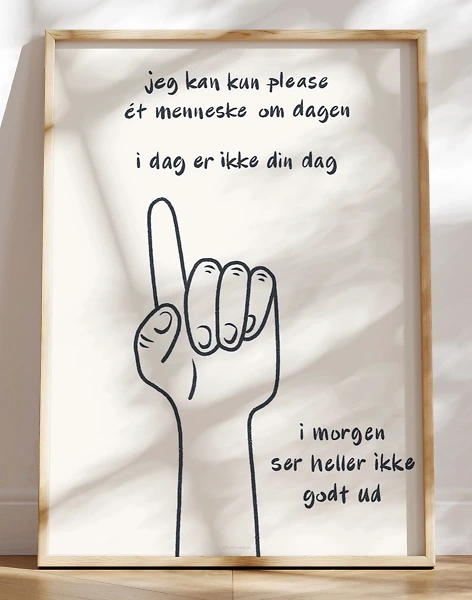 jeg kan kun please
ét menneske om dagen
i dag er ikke din dag
i morgen
ser heller ikke
godt ud